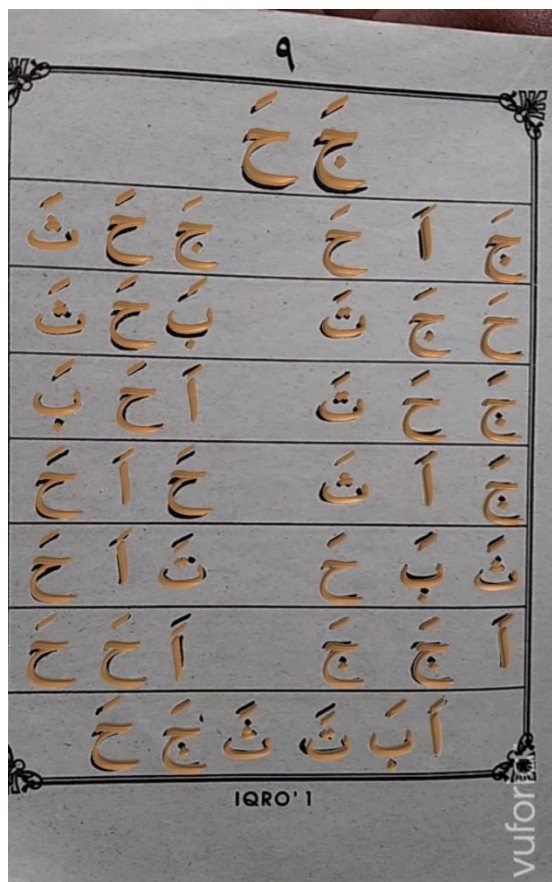 ٩
جَ حَ
جَ اَ حَ جَ حَ ثَ
حَ جَ تَ بَ حَ ثَ
جَ حَ تَ اَ حَ بَ
جَ اَ ثَ حَ اَ حَ
ثَ بَ حَ تَ اَ حَ
اَ جَ جَ اَ حَ حَ
اَ بَ تَ ثَ جَ حَ
IQRO' 1
vufor